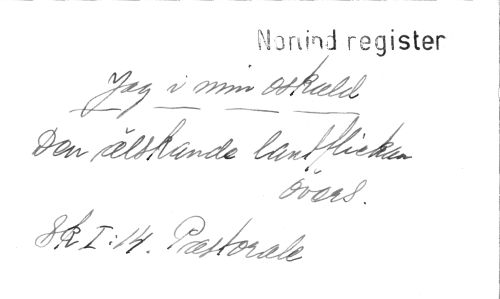 Norlind register
Jag i min oskuld
Den älskande lantflickan
övers.
SK I:14. Pastorale